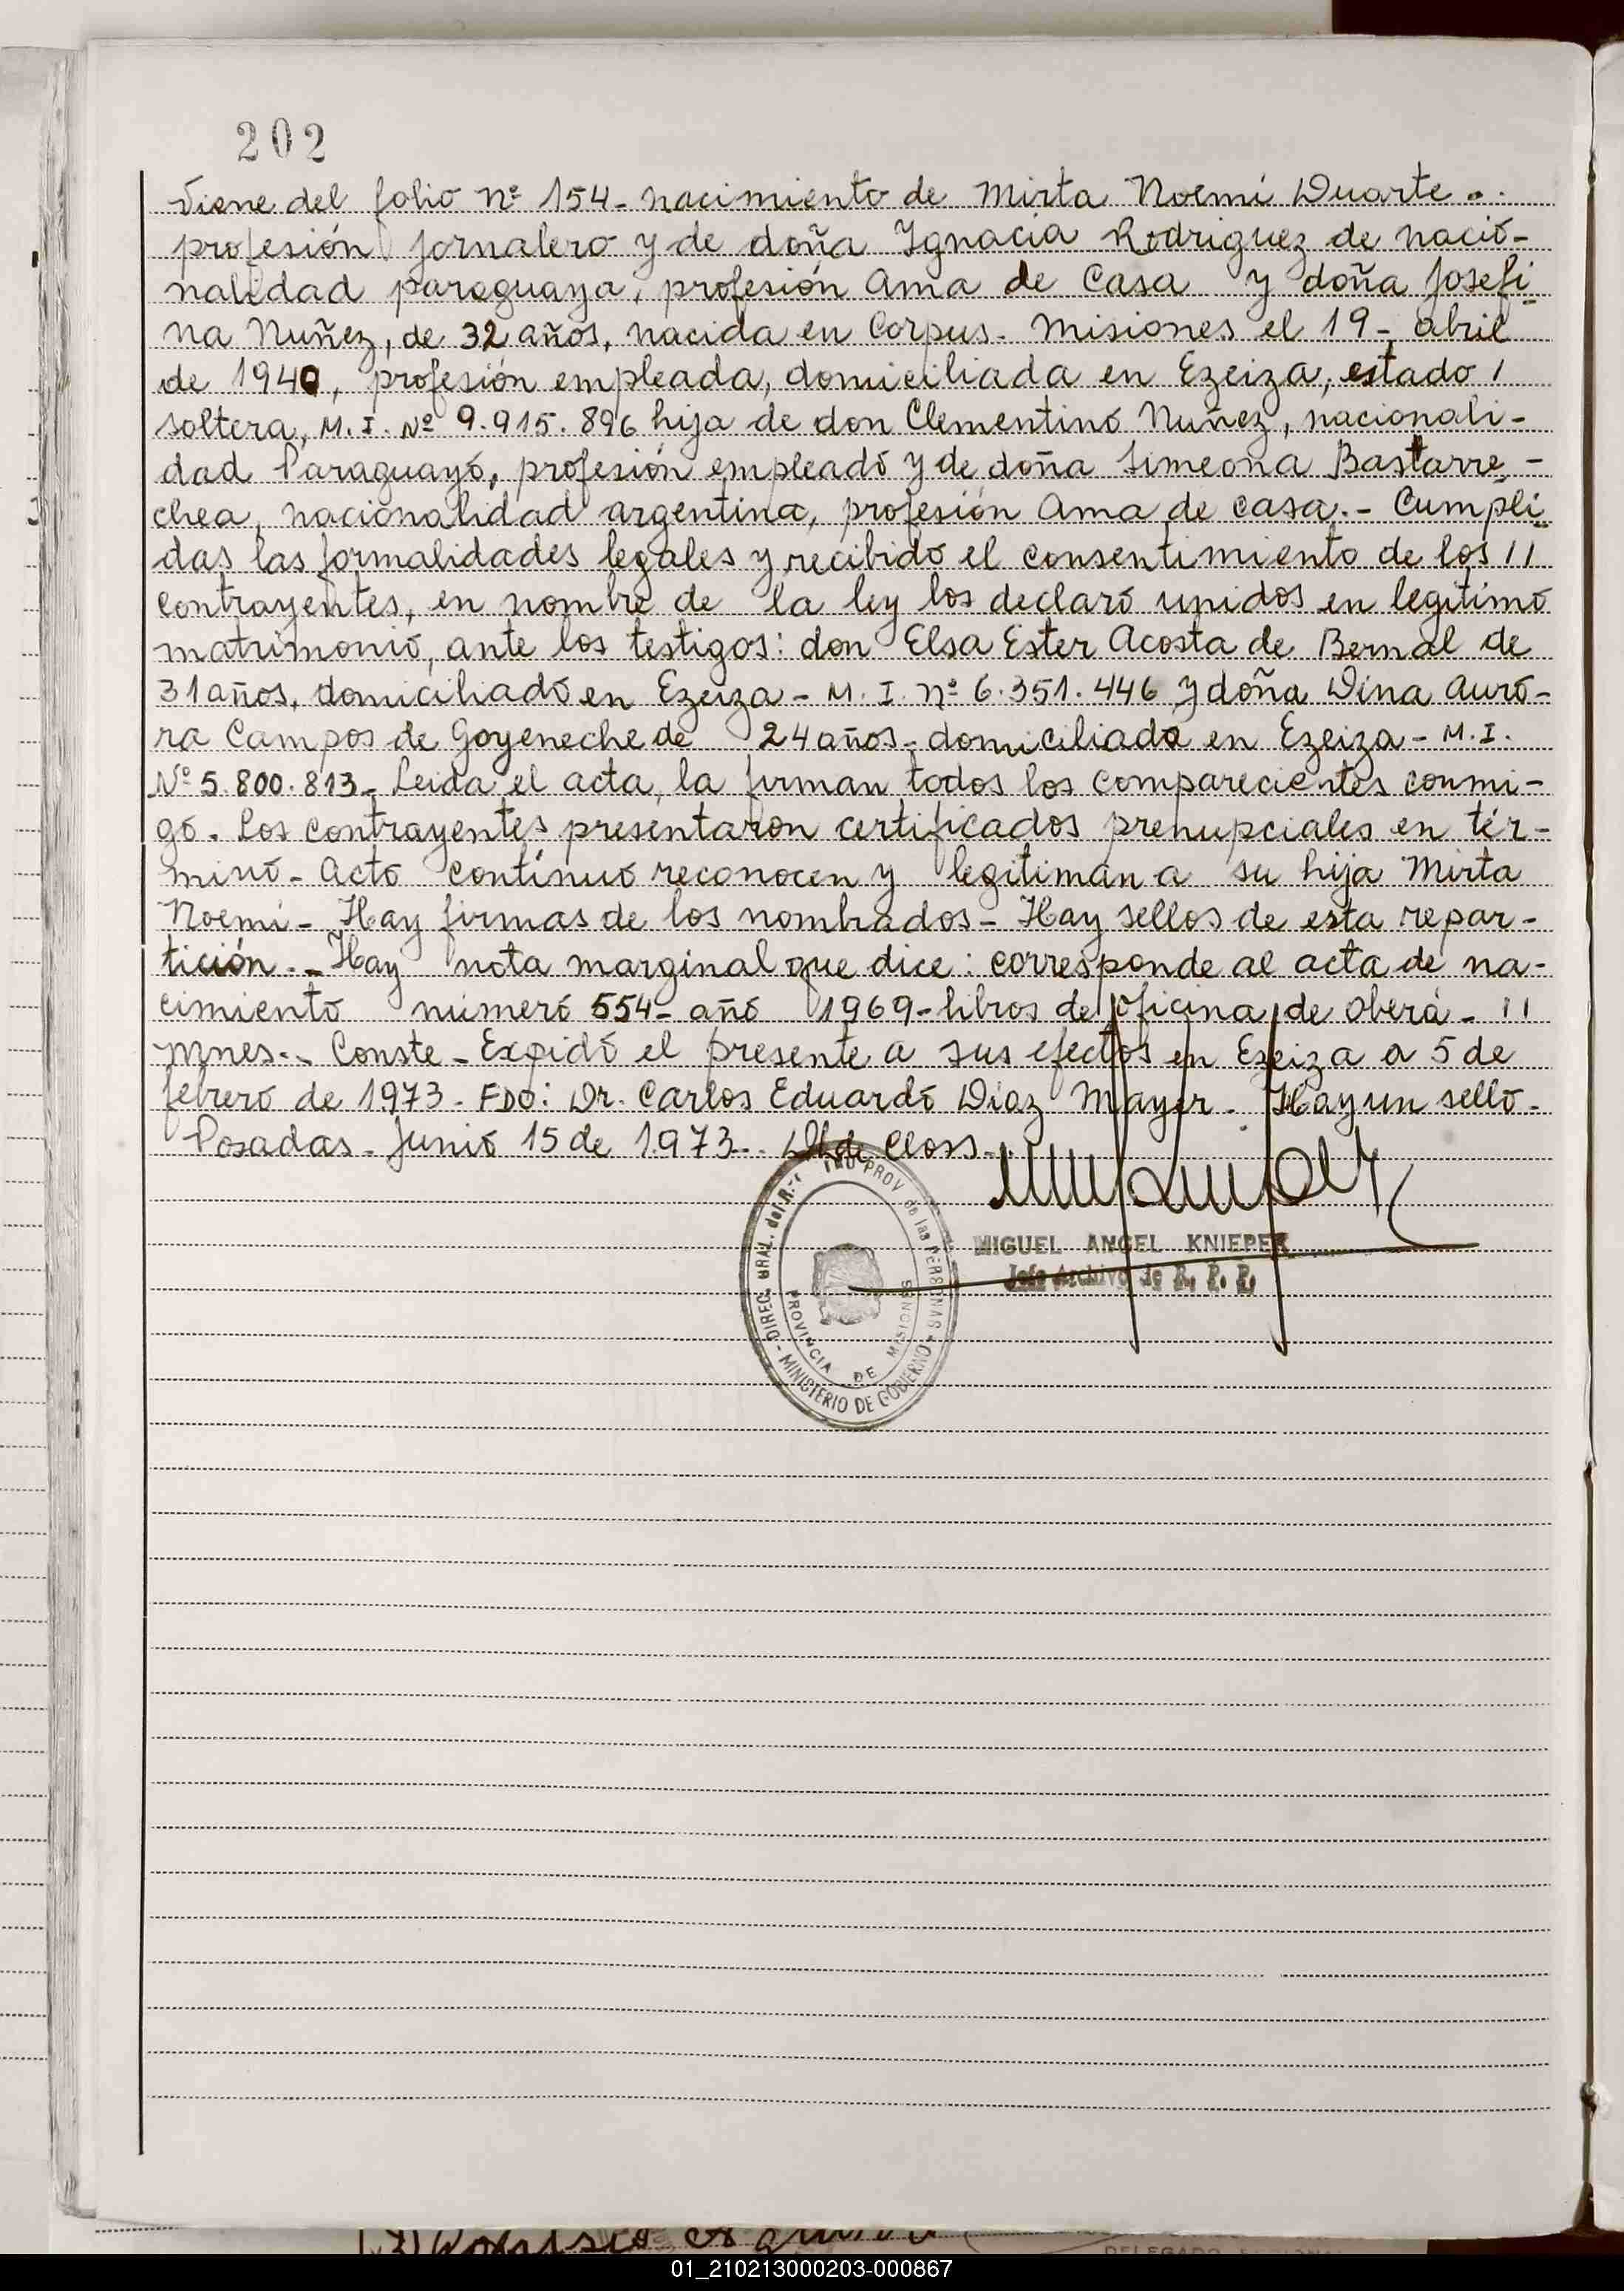 202
Viene del folio Nº 154- nacimiento de Mirta Noemí Duarte..
profesión jornalero y de doña Ygnacia Rodriguez de nacio-
nalidad paraguaya, profesión Ama de Casa y doña Josefi
na Nuñez, de 32 años, nacida en Corpus- Misiones el 19- abril
de 1940, profesión empleada, domiciliada en Ezeiza, estado /
soltera, M.I. Nº 9.915.896 hija de don Clementino Nuñez, nacionali-
dad Paraguayo, profesión empleado y de doña Simeona Bastarre-
chea, nacionalidad argentina, profesión Ama de casa.- Cumpli
das las formalidades legales y recibido el consentimiento de los //
contrayentes, en nombre de la ley los declaró unidos en legítimo
matrimonio, ante los testigos: don Elsa Ester Acosta de Bernal de
31 años, domiciliado en Ezeiza- M.I. Nº 6.351.446 y doña Dina Auro-
ra Campos de Goyeneche de 24 años- domiciliada en Ezeiza- M.I.
Nº 5.800.813- Leida el acta, la firman todos los comparecientes conmi-
go. Los contrayentes presentaron certificados prenupciales en tér-
mino- Acto continuo reconocen y legitiman a su hija Mirta
Noemí- Hay firmas de los nombrados- Hay sellos de esta repar-
tición.- Hay nota marginal que dice: corresponde al acta de na-
cimiento número 554- año 1969- libros de oficina de Oberá- //
Mnes.- Conste- Expido el presente a sus efectos en Ezeiza a 5 de
febrero de 1973- FDO: Dr. Carlos Eduardo Diaz Mayer- Hay un sello-
Posadas- Junio 15 de 1.973.- de Closs-
DIREC. GRAL. del R. PROV. de las PERSONAS - MINISTERIO DE GOBIERNO -
PROVINCIA DE MISIONES
MIGUEL ANGEL KNIEPER
Jefe Archivo de R. P. P.
01_210213000203-000867